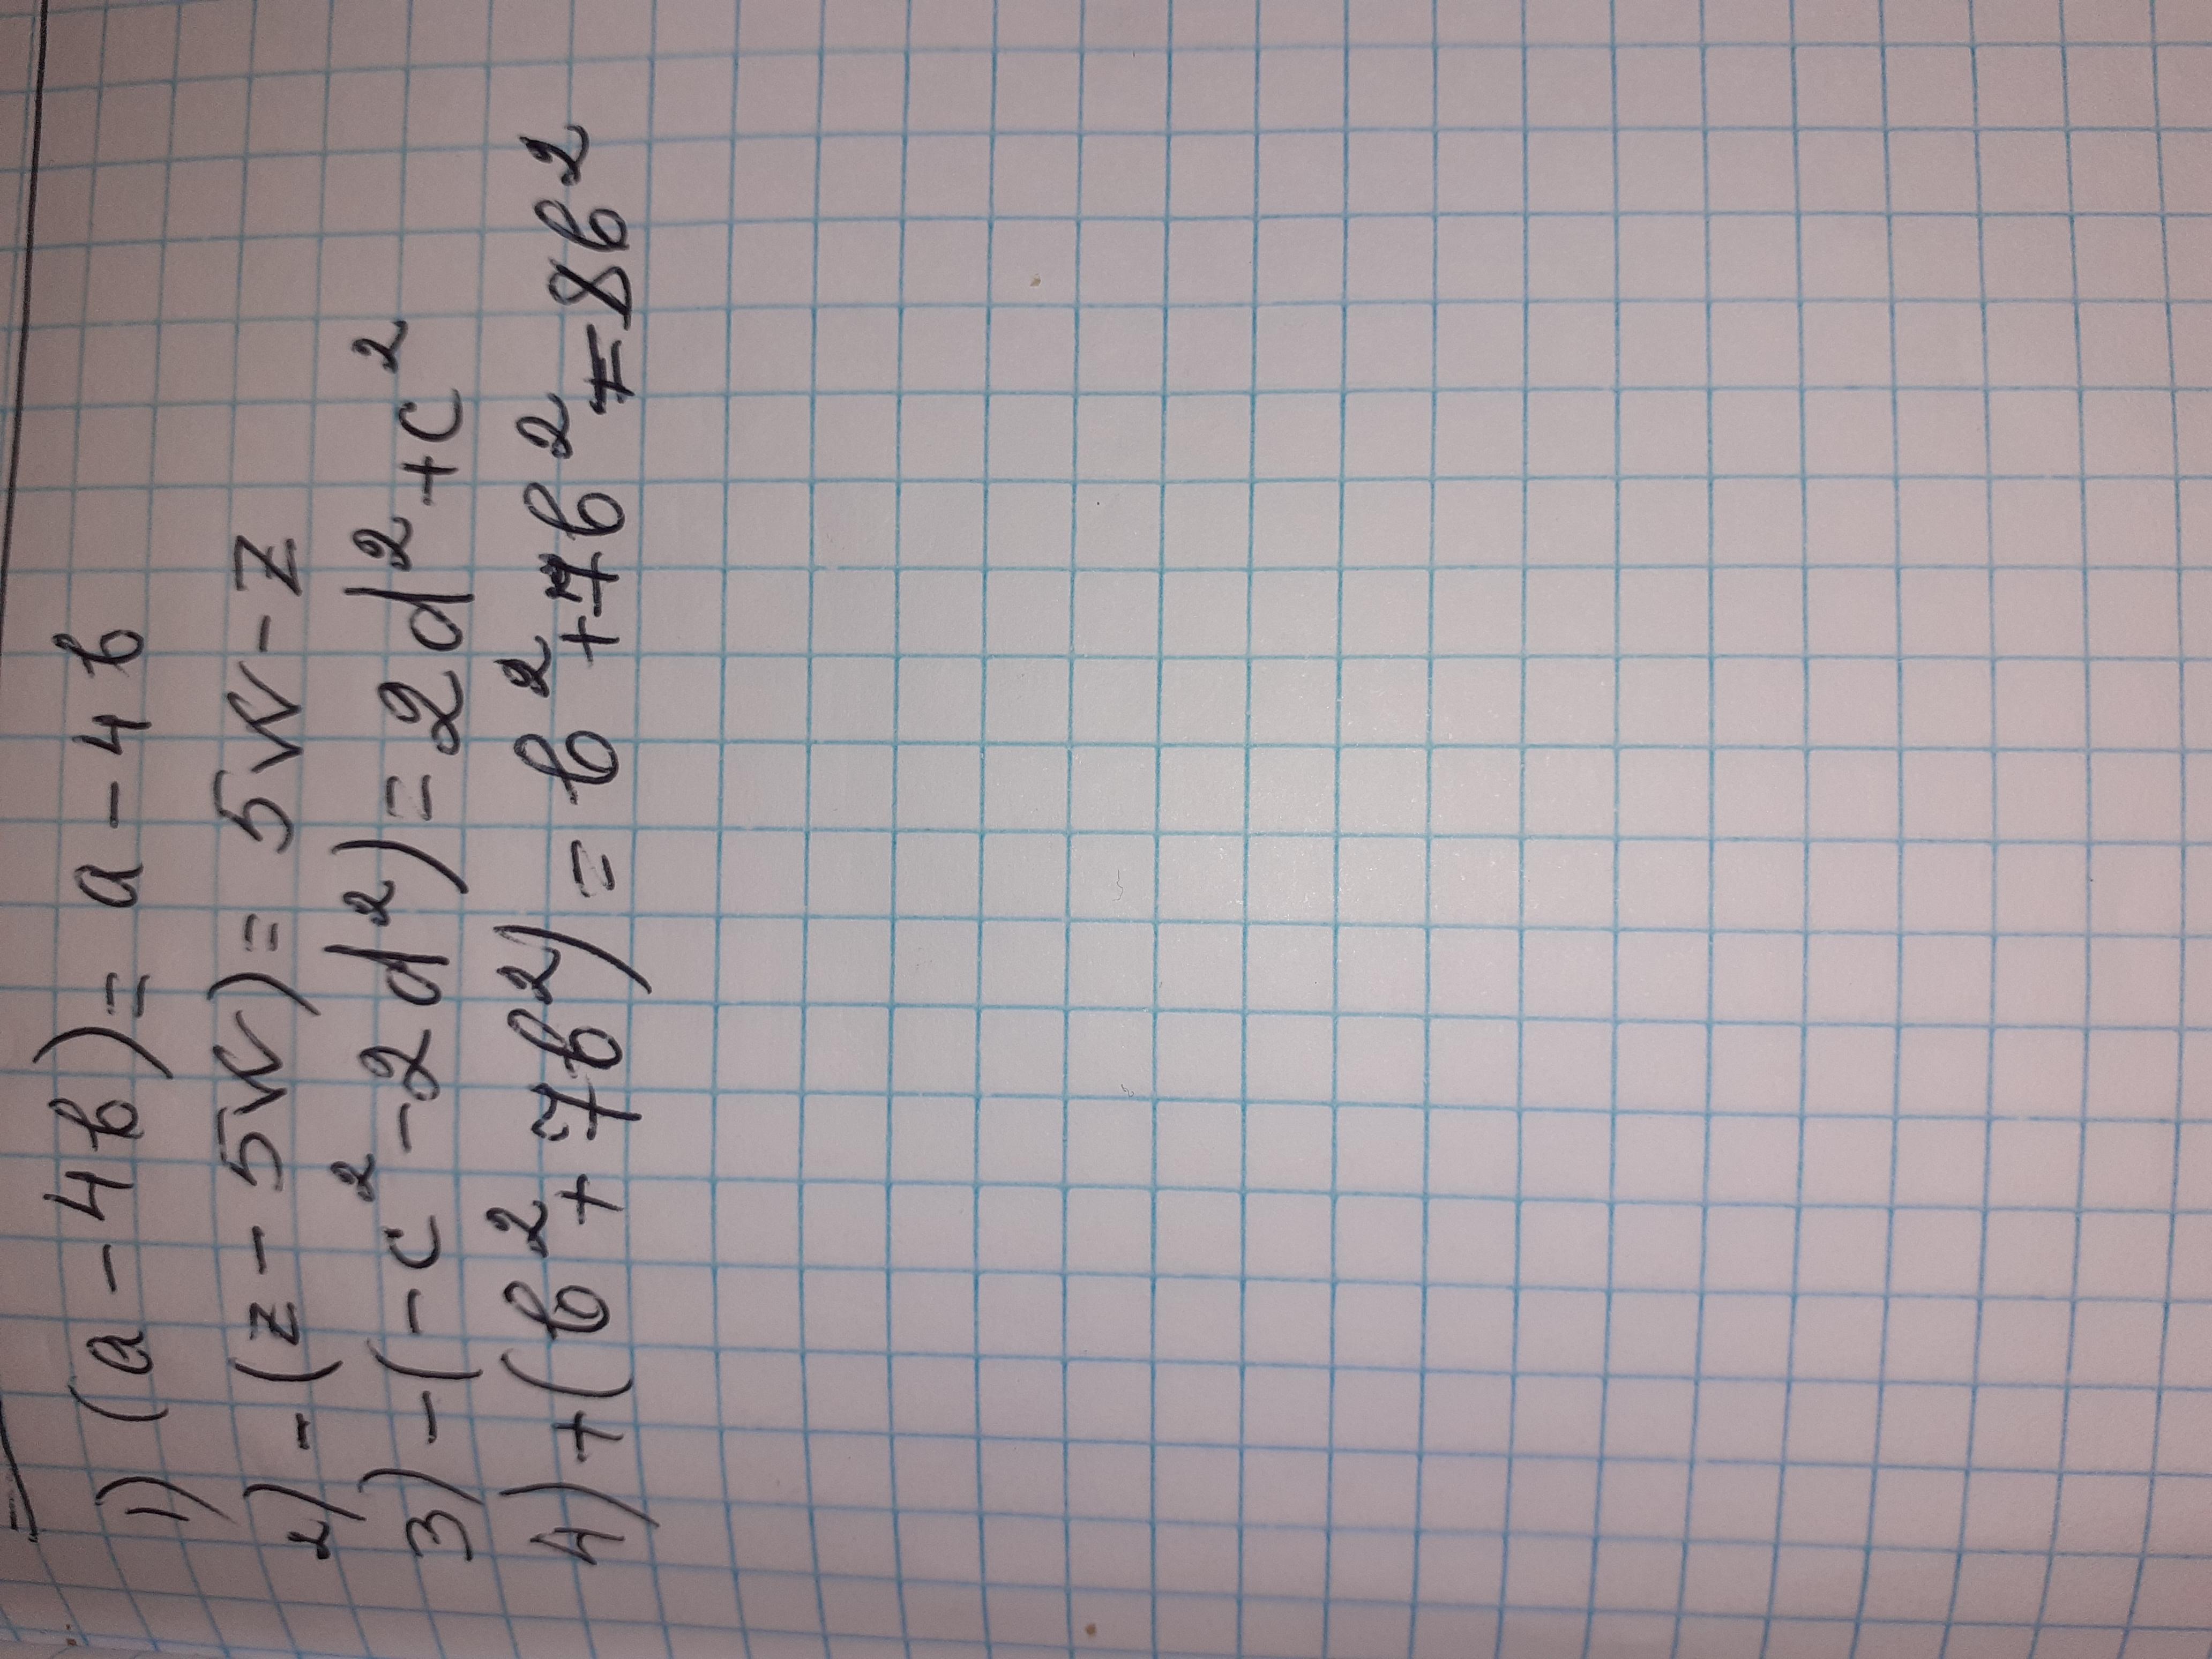 1) (a - 4b) = a - 4b
2) - (z - 5w) = 5w - z
3) - (- c² - 2d²) = 2d² + c²
4) + (b² + 7b²) = b² + 7b² = 8b²